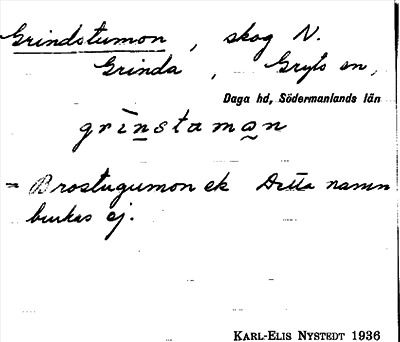 Grindstumon, skog N.
Grinda, Gryts sn,
Daga hd, Södermanlands län
grìnstaman
= Brostugumon ek Detta namn
brukas ej.
KARL-ELIS NYSTEDT 1936